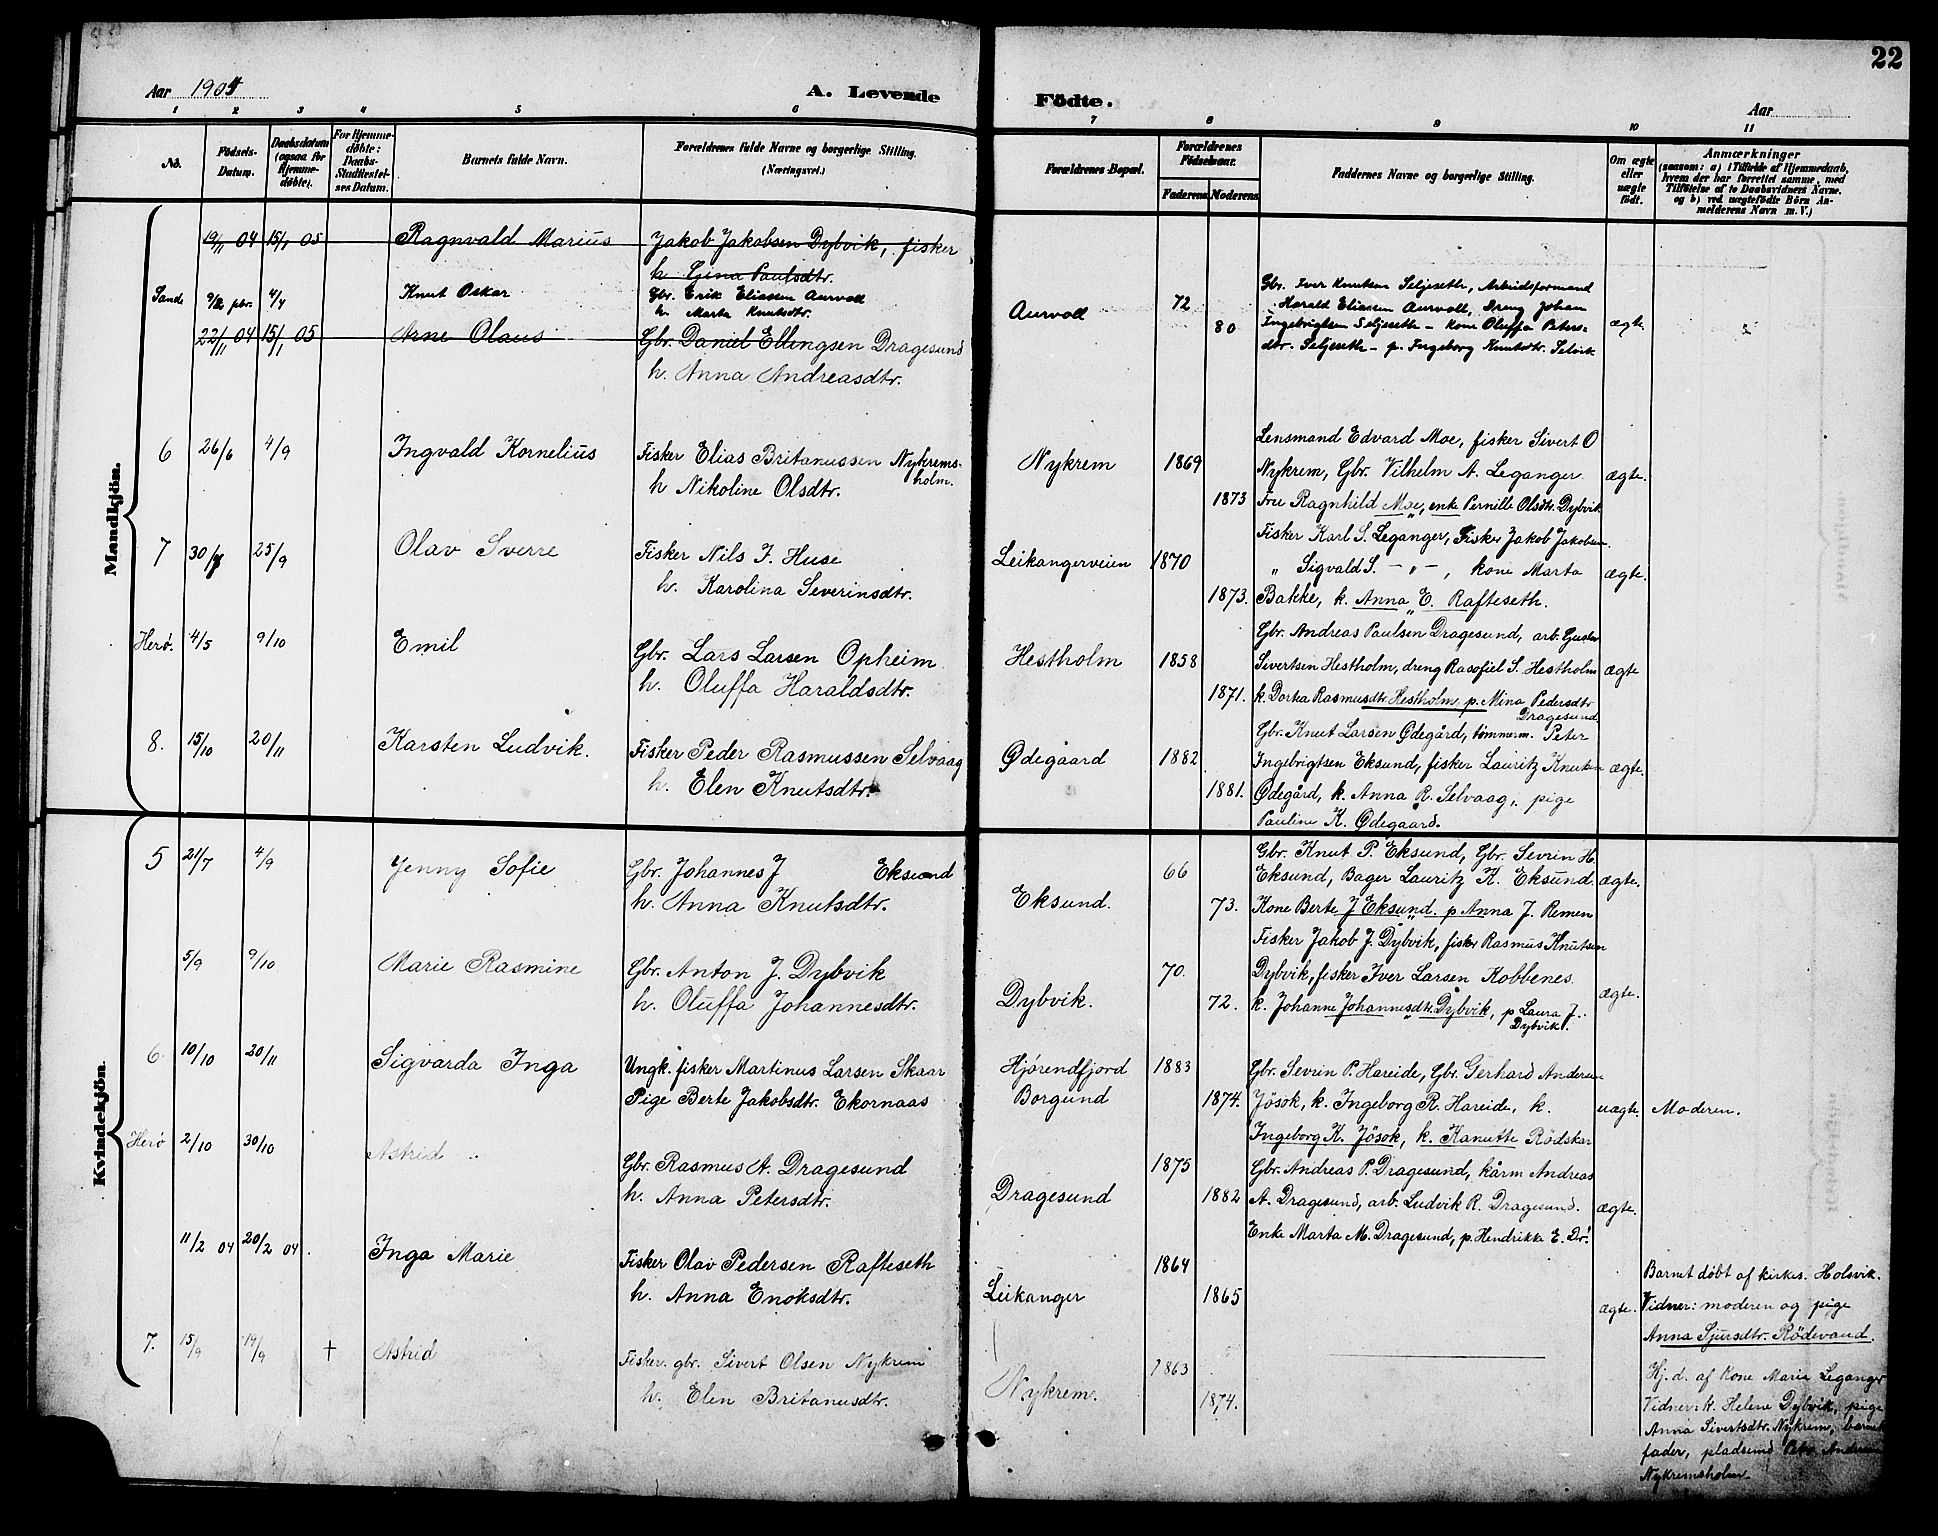 22
Aar 1904
A. Levende
Födte.
Aar
1 2 3 4 5 6 7 8 9 10 11
No.
Födsels-Datum.
Daabsdatum (ogsaa for Hjemme-döbte).
For Hjemme-döbte: Daabs-Stadfæstel-ses Datum.
Barnets fulde Navn.
Forældrenes fulde Navne og borgerlige Stilling.
(Næringsvei.)
Forældrenes Bopæl.
Forældrenes Födselsaar.
Faderens Moderens
Faddernes Navne og borgerlige Stilling.
Om ægte eller uægte födt.
Anmærkninger
(saasom: a) i Tilfælde af Hjemmedaab,
hvem der har forrettet samme, med
Tilföielse af to Daabsvidners Navne.
og b) ved uægtefödte Börn An-
melderens Navn m. V.)
Mandkjön.
19/11 04 15/1 05 Ragnvald Marius Jakob Jakobsen Dybvik, fisker
h. Gina Paulsdtr.
Sande 9/2 pbr. 4/4 Knut Oskar Gbr. Erik Eliassen Aurvoll
h. Marta Knutsdtr.
Aurvoll 72 80
Gbr. Iver Knutsen Seljeseth, Arbeidsformand
Harald Eliasen Aurvoll, Dreng Johan
Ingebrigtsen Seljeseth - Kone Oluffa Peters-
dtr. Seljeseth - p. Ingeborg Knutsdtr. Selvik
ægte
22/11 04 15/1 05 Arne Olaus Gbr. Daniel Ellingsen Dragesund
h. Anna Andreasdtr.
6 26/6 4/9 Ingvald Kornelius Fisker Elias Britanussen Nykrems-
holm.
h Nikoline Olsdtr.
Nykrem 1869 1873
Lensmand Edvard Moe, fisker Sivert O
Nykrem, Gbr. Vilhelm A. Leganger
Fru Ragnhild Moe, enke Pernille Olsdtr. Dybvik
ægte.
7 30/7 25/9 Olav Sverre Fisker Nils J. Huse
h. Karolina Severinsdtr.
Leikangerveien 1870 1873.
Fisker Karl S. Leganger, Fisker Jakob Jakobsen
„ Sigvald S. - „ - , kone Marta
Bakke, k. Anna E. Rafteseth.
ægte.
Herø. 4/5 9/10 Emil Gbr. Lars Larsen Opheim
h. Oluffa Haraldsdtr.
Hestholm 1858 1871.
Gbr. Andreas Paulsen Dragesund, arb. Gustav
Sivertsen Hestholm, dreng Rasofiel S. Hestholm
k. Dorka Rasmusdtr. Hestholm p. Mina Pedersdtr
Dragesund.
ægte
8. 15/10 20/11 Karsten Ludvik. Fisker Peder Rasmussen Selvaag
h. Elen Knutsdtr.
Ødegaard 1882 1881.
Gbr. Knut Larsen Ødegård, tømmerm. Peter
Ingebrigtsen Eksund, fisker Lauritz Knutsen
Ødegård, k. Anna R. Selvaag, pige
Pauline K. Ødegaard.
ægte.
Kvindekjön.
5 21/7 4/9 Jenny Sofie Gbr. Johannes J Eksund
h. Anna Knutsdtr.
Eksund. 66 73.
Gbr. Knut P. Eksund, Gbr. Sevrin H.
Eksund, Bager Lauritz K. Eksund.
Kone Berte J Eksund. p Anna J. Remen
ægte.
5/9 9/10 Marie Rasmine Gbr. Anton J. Dybvik
h. Oluffa Johannesdtr.
Dybvik. 70. 72.
Fisker Jakob J. Dybvik, fisker Rasmus Knutsen
Dybvik, fisker Iver Larsen Kobbenes
k. Johanne Johannesdtr. Dybvik, p Laura J.
Dybvik.
ægte.
6. 10/10 20/11 Sigvarda Inga Ungk. fisker Martinus Larsen Skaar
Pige Berte Jakobsdtr. Ekornaas
Hjørendfjord
Borgund
1883 1874.
Gbr. Sevrin P. Hareide, Gbr. Gerhard Andersen
Jösok, k. Ingeborg R. Hareide, k.
Ingeborg K. Jösok, k. Kanutte Rödskar
uægte. Moderen.
Herö 2/10 30/10 Astrid Gbr. Rasmus A. Dragesund
h. Anna Petersdtr.
Dragesund 1875 1882
Gbr. Andreas P. Dragesund, kårm Andreas
A. Dragesund, arb. Ludvik R. Dragesund.
Enke Marta M. Dragesund, p. Hendrikke E. Dr.
ægte.
11/2 04 20/2 04. Inga Marie Fisker Olav Pedersen Rafteseth
h. Anna Enoksdtr.
Leikanger 1864 1865
ægte.
Barnet döbt af kirkes. Holsvik.
Vidner: moderen og pige
Anna Sjursdtr. Rödevand.
7. 15/9 19/9 † Astrid Fisker. gbr. Sivert Olsen Nykrem
h. Elen Britanusdtr.
Nykrem. 1863 1874.
Hj. d. af Kone Maria Leganger
Vidner: k. Helene Dybvik, pige
Anna Sivertsdtr. Nykrem, barnets
fader, pladsmd Andersen
Nykremsholm.